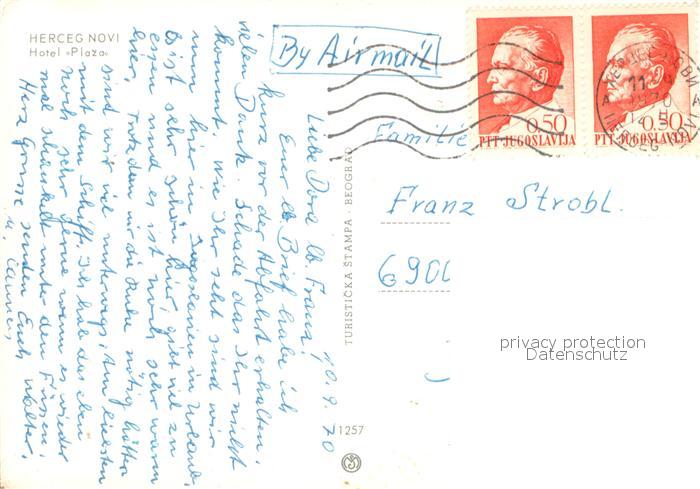 HERCEG NOVI
Hotel »Plaža«
By Airmail
10. 9. 70
Liebe Dora lb. Franz!
Euer lb. Brief habe ich
kurz vor der Abfahrt erhalten.
vielen Dank. Schade das Ihr nicht
kommt. Wie Ihr seht sind wir
nun hier in Jugoslavien in Urlaub,
es ist sehr schön hier, gibt viel zu
essen und es ist noch sehr warm
hier, Trotzdem wir die Ruhe nötig hätten
sind wir viel unterwegs, Am liebsten
mit dem Schiff. Ich hab das eben
noch sehr gerne wenn es wieder
mal schaukelt unter den Füssen.
Herz Grüsse senden Euch Walter,
u.
TURISTIČKA ŠTAMPA - BEOGRAD
1257
0,50
PTT-JUGOSLAVIJA
0,50
PTT-JUGOSLAVIJA
Familie
Franz Strobl.
6900
privacy protection
Datenschutz